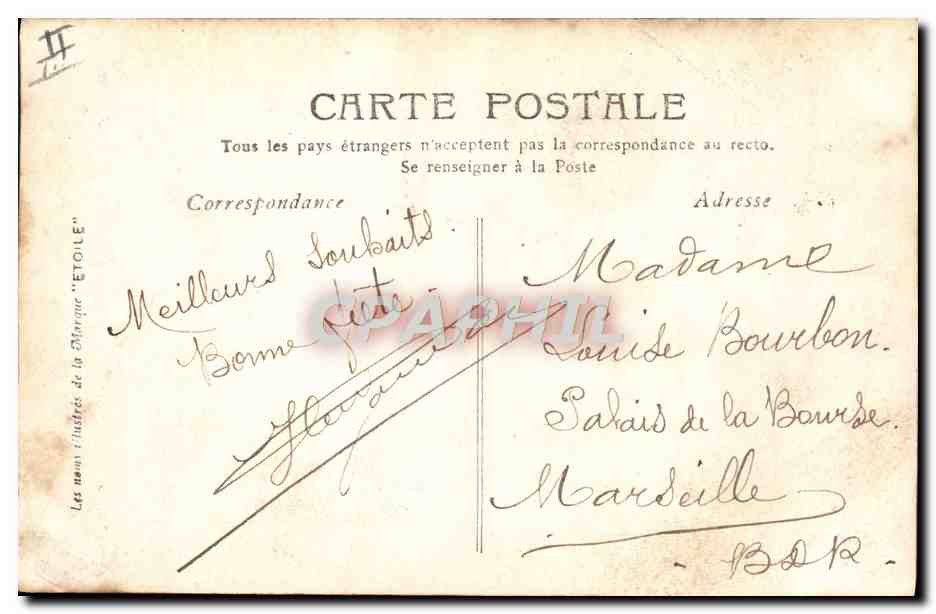 II
CARTE POSTALE
Tous les pays étrangers n'acceptent pas la correspondance au recto.
Se renseigner à la Poste
Correspondance
Meilleurs Souhaits.
Bonne fête.
Adresse
Madame
Louise Bourbon.
Palais de la Bourse.
Marseille
- BDR -
Les noms illustrés de la Marque "ETOILE"
CPAPHIL